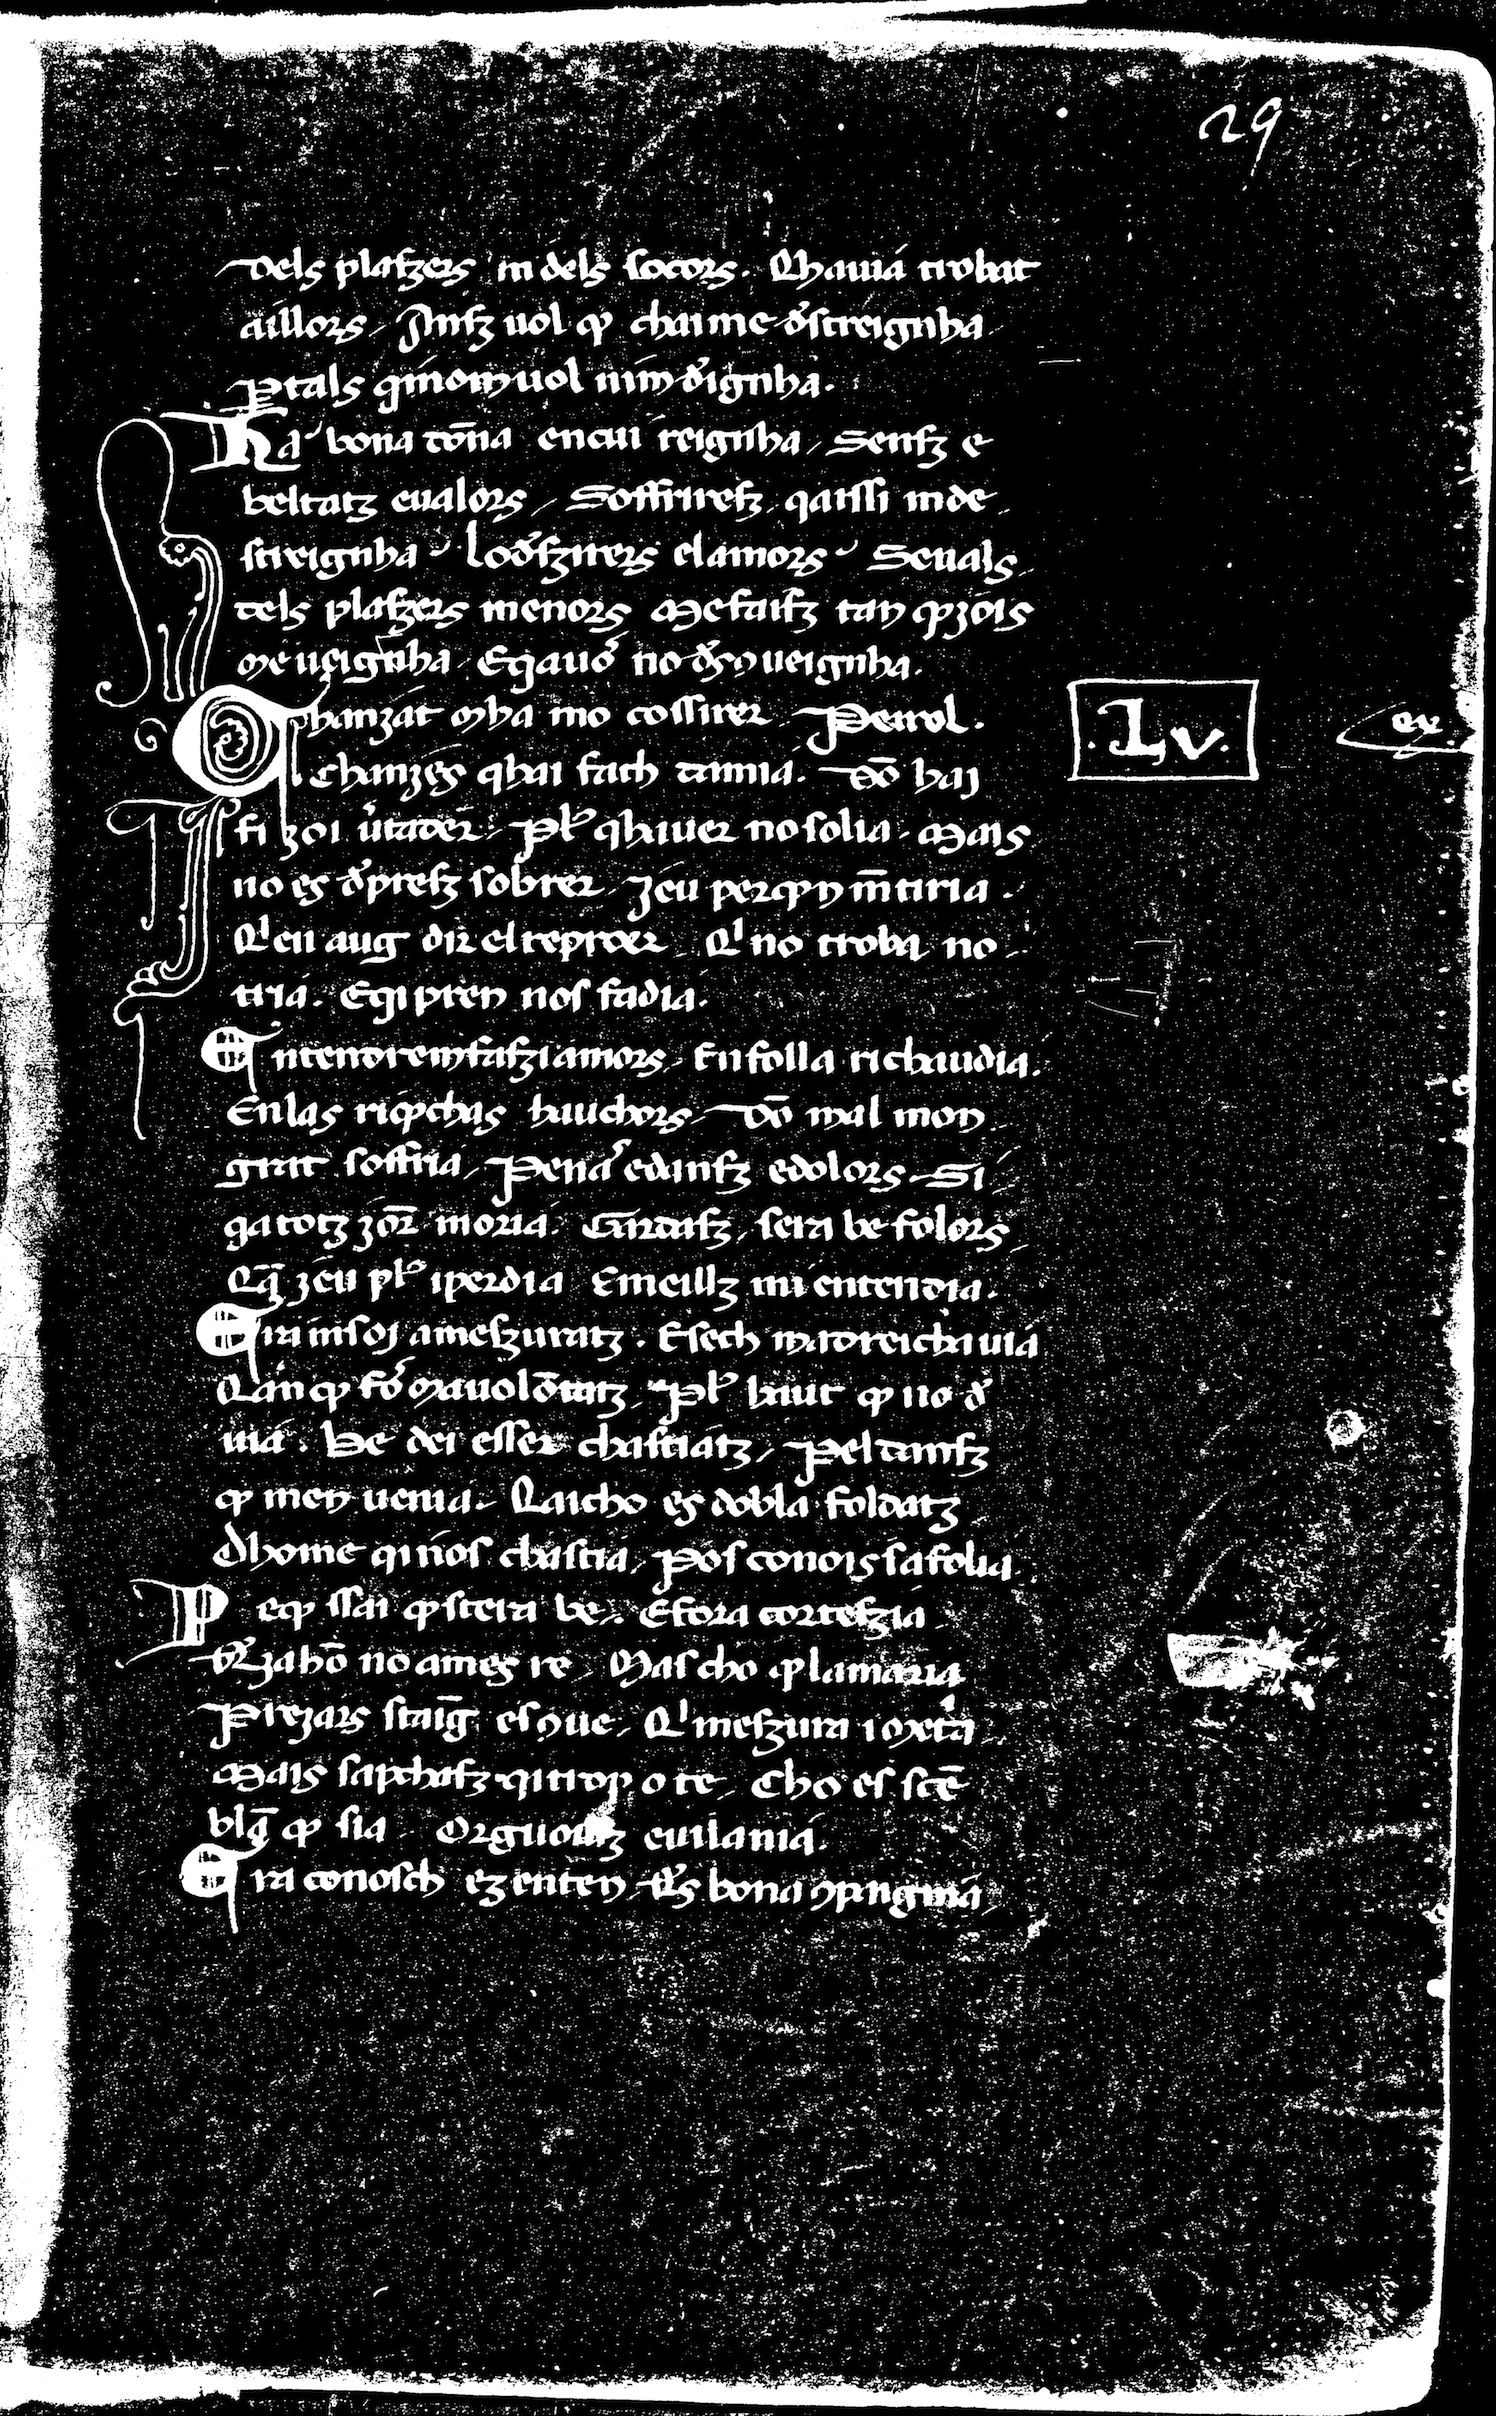 29
Dels plaſzers in dels ſocors. Qhauia trobat
aillors, Anſz uol qe chaime deſtreignha
Ptals qinom uol nim deignha.
Ha bona dōna encui reignha, Senſz e
beltatz eualors, Soffrireſz qaiſſi mde
ſtreignha, lo deſzirers elamors, Seuals
dels plaſzers menors Mefaiſz tan qe jois
me ueignha. Eqauos no deſꝯueignha.
Chanzat mha mo coſſirer Peirol.
Chanzes qhai fach damia. Dō hai
fi zoi uertader. Plus qhauer no ſolia. Mais
no es depreſz ſobrer. Jeu perqen mētiria.
Qieu aug dir el reproer Qi no troba no
tria. Eqi pren nos fadia.
Entendrem faſzi amors, En folla richaudia.
En las riqechas hauchors, Dō mal mon
grat ſoffria, Pena edanſz edolors, Si
qa totz jorz moria. Gardaſz, ſera be folors
Qā jeu plus iperdia Emeillz mi entendia.
Era mſoj ameſzuratz. Eſech madreicha uia
Qan qe fos ma uolōtatz Plus haut qe no de
uia. Be dei eſſer chaſtiatz, Pel danſz
qe men uenia. Qaicho es dobla foldatz
Dhome qi nos chaſtia, Pos conois ſa folia.
Peqe ſſai qeſtera be. Efora cortezia
Qeja hō no ames re, Mas cho qe lamaria
Prejars ſtaīg eſꝯue, Qi meſzura i metria
Mais ſapchaſz qi trop ote, Cho eſ ſcē
blā qe ſia Orguoillz euilania.
Era conoſch ez enten Qes bona ꝯpangnia
.Lv.